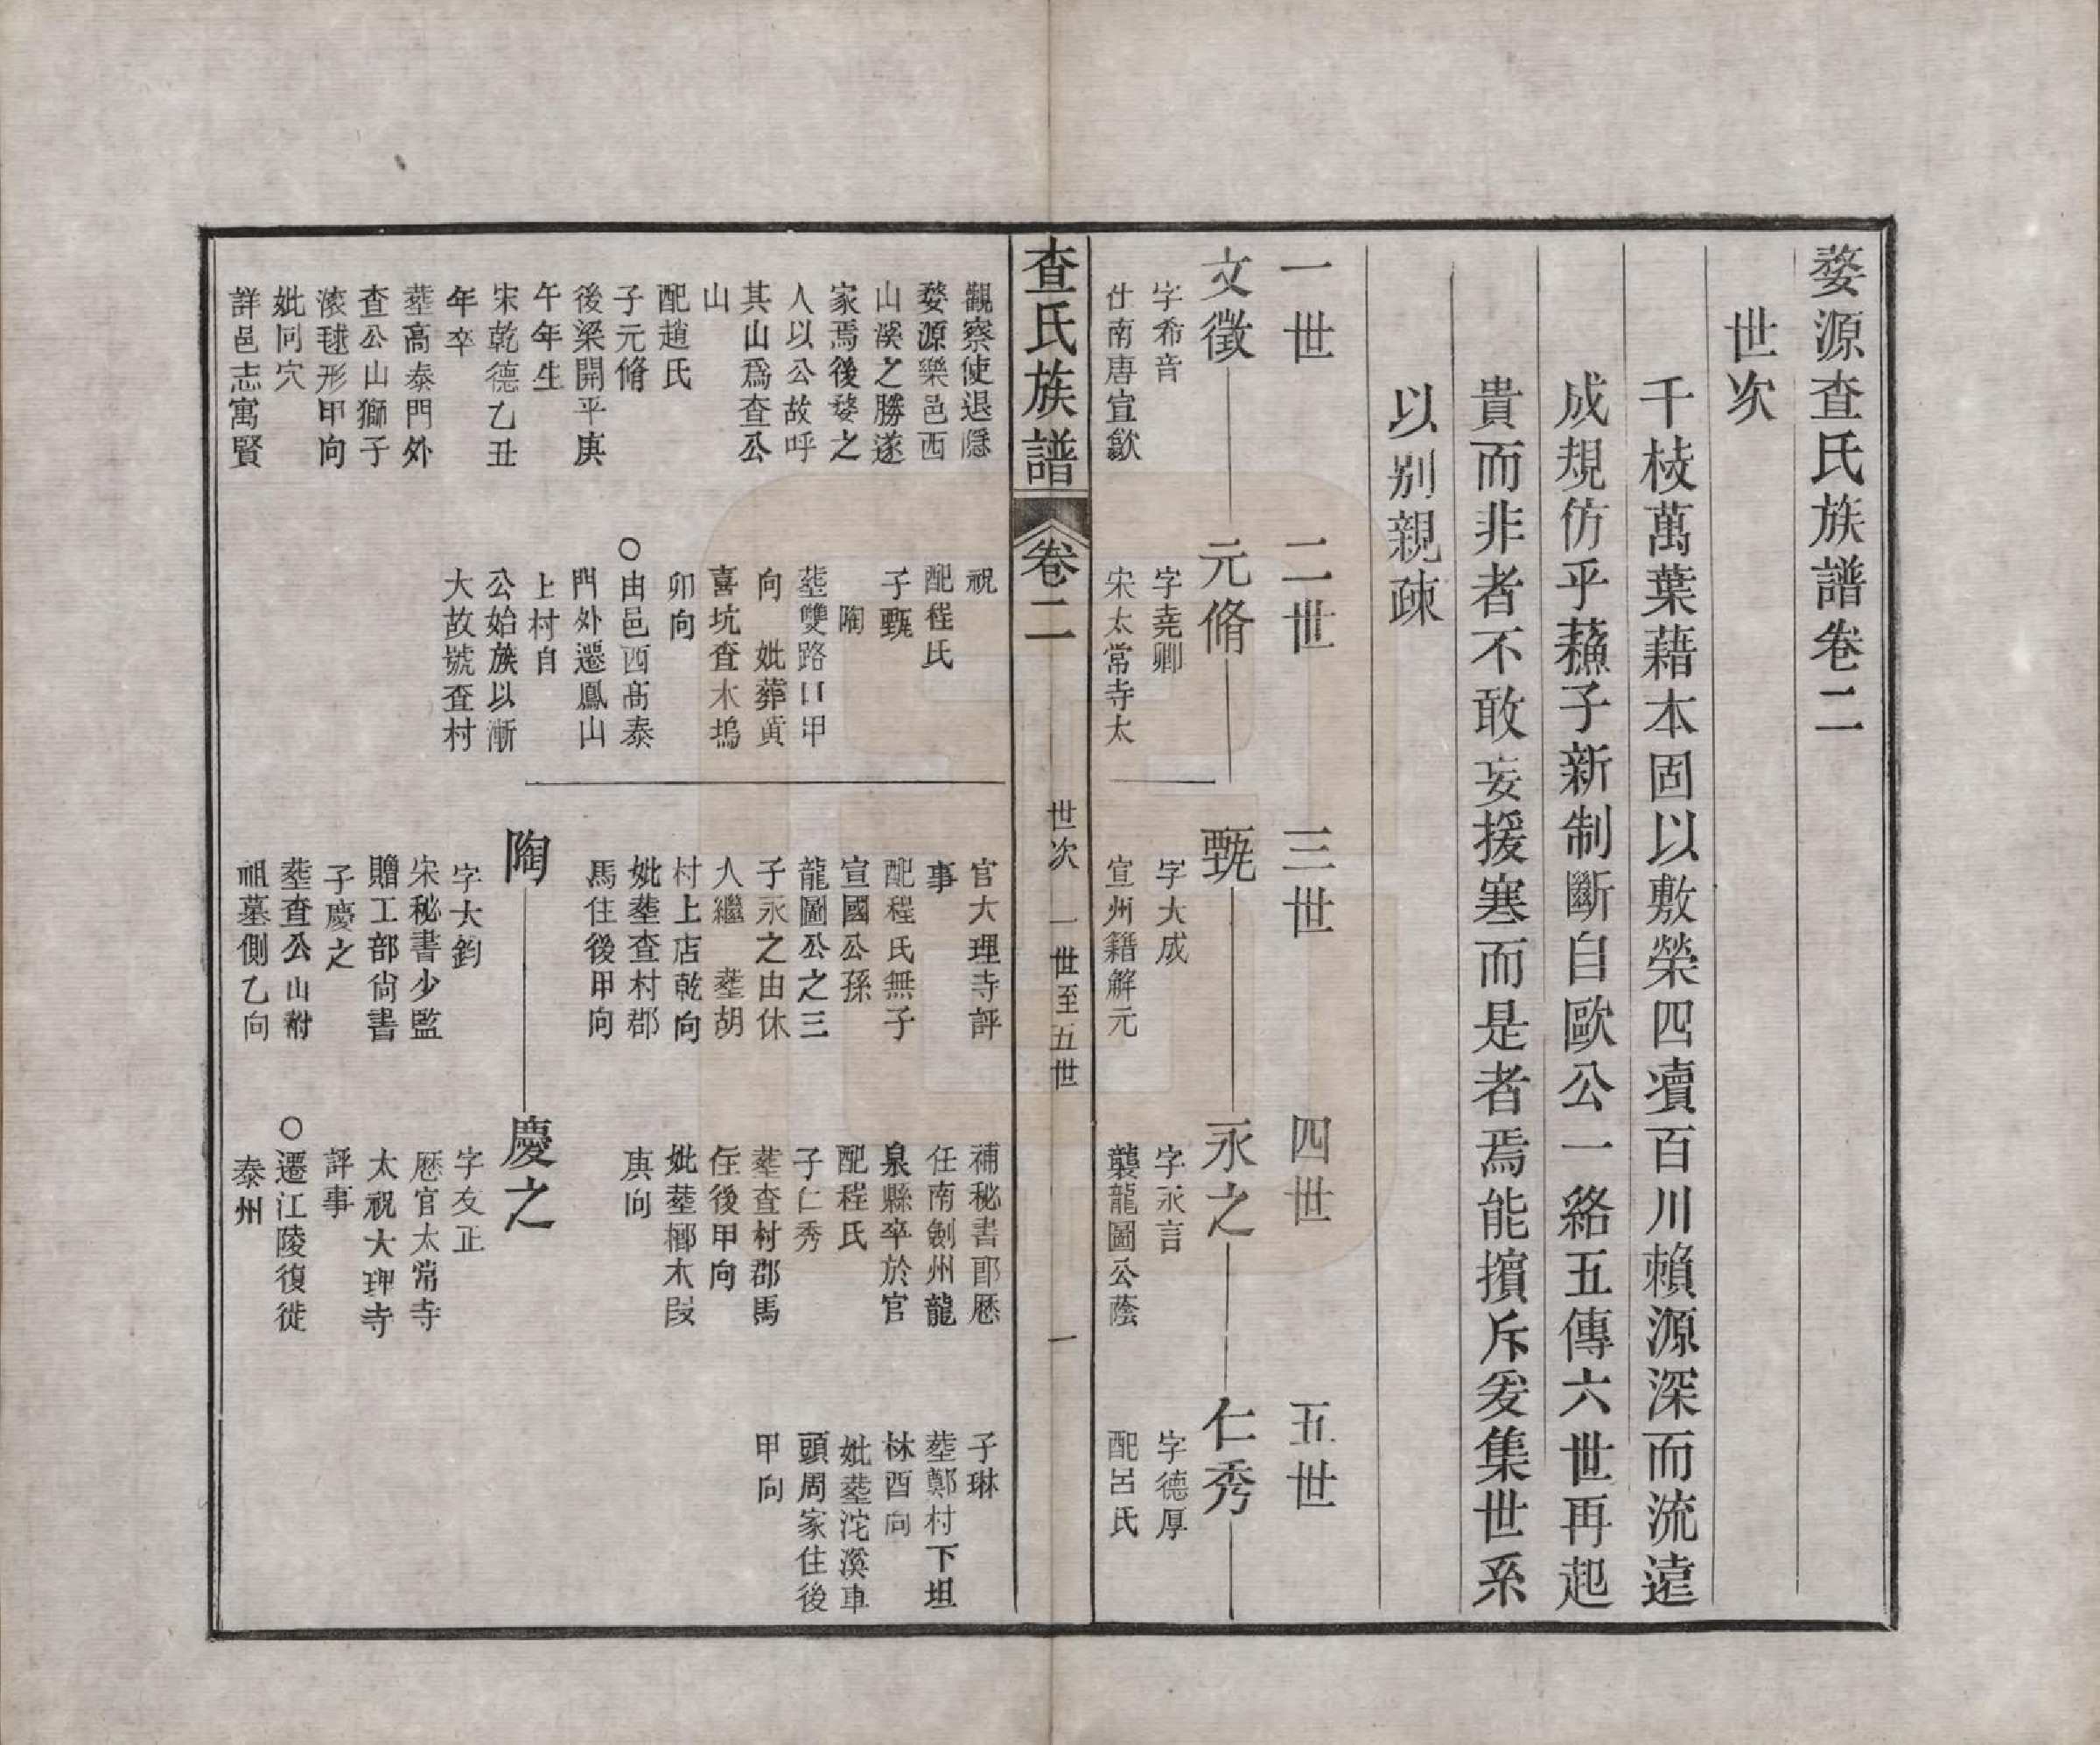 婺源查氏族譜卷二
世次
千枝萬葉藉本固以敷榮四瀆百川賴源深而流遠
成規仿乎蘓子新制斷自歐公一絡五傳六世再起
貴而非者不敢妄援寒而是者焉能擯斥爰集世系
以别親疎
一世
二世
三世
四世
五世
文徵
字希音
仕南唐宣歙
元脩
字堯卿
宋太常寺太
甄
字大成
宣州籍解元
永之
字永言
襲龍圖公蔭
仁秀
字德厚
配呂氏
查氏族譜
卷二
世次
一世至五世
一
觀察使退隱
婺源樂邑西
山溪之勝遂
家焉後婺之
人以公故呼
其山爲查公
山
配趙氏
子元脩
後梁開平庚
午年生
宋乾德乙丑
年卒
塟高泰門外
查公山獅子
滚毬形甲向
妣同穴
詳邑志寓賢
祝
配程氏
子甄
陶
塟雙路口甲
向 妣葬黄
喜坑查木塢
卯向
○由邑西髙泰
門外遷鳳山
上村自
公始族以漸
大故號查村
官大理寺評
事
配程氏無子
宣國公孫
龍圖公之三
子永之由休
人繼 塟胡
村上店乾向
妣塟查村郡
馬住後甲向
補秘書郎歷
任南劍州龍
泉縣卒於官
配程氏
子仁秀
塟查村郡馬
住後甲向
妣塟梛木段
庚向
子琳
塟鄭村下坦
林酉向
妣塟沱溪車
頭周家住後
甲向
陶
字大鈞
宋秘書少監
贈工部尙書
子慶之
塟查公山附
祖墓側乙向
慶之
字友正
歷官太常寺
太祝大理寺
評事
○遷江陵復徙
泰州